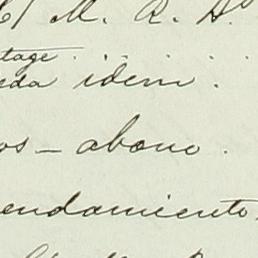 M. R. D
tage
eda idem .
os — abono .
endamiento